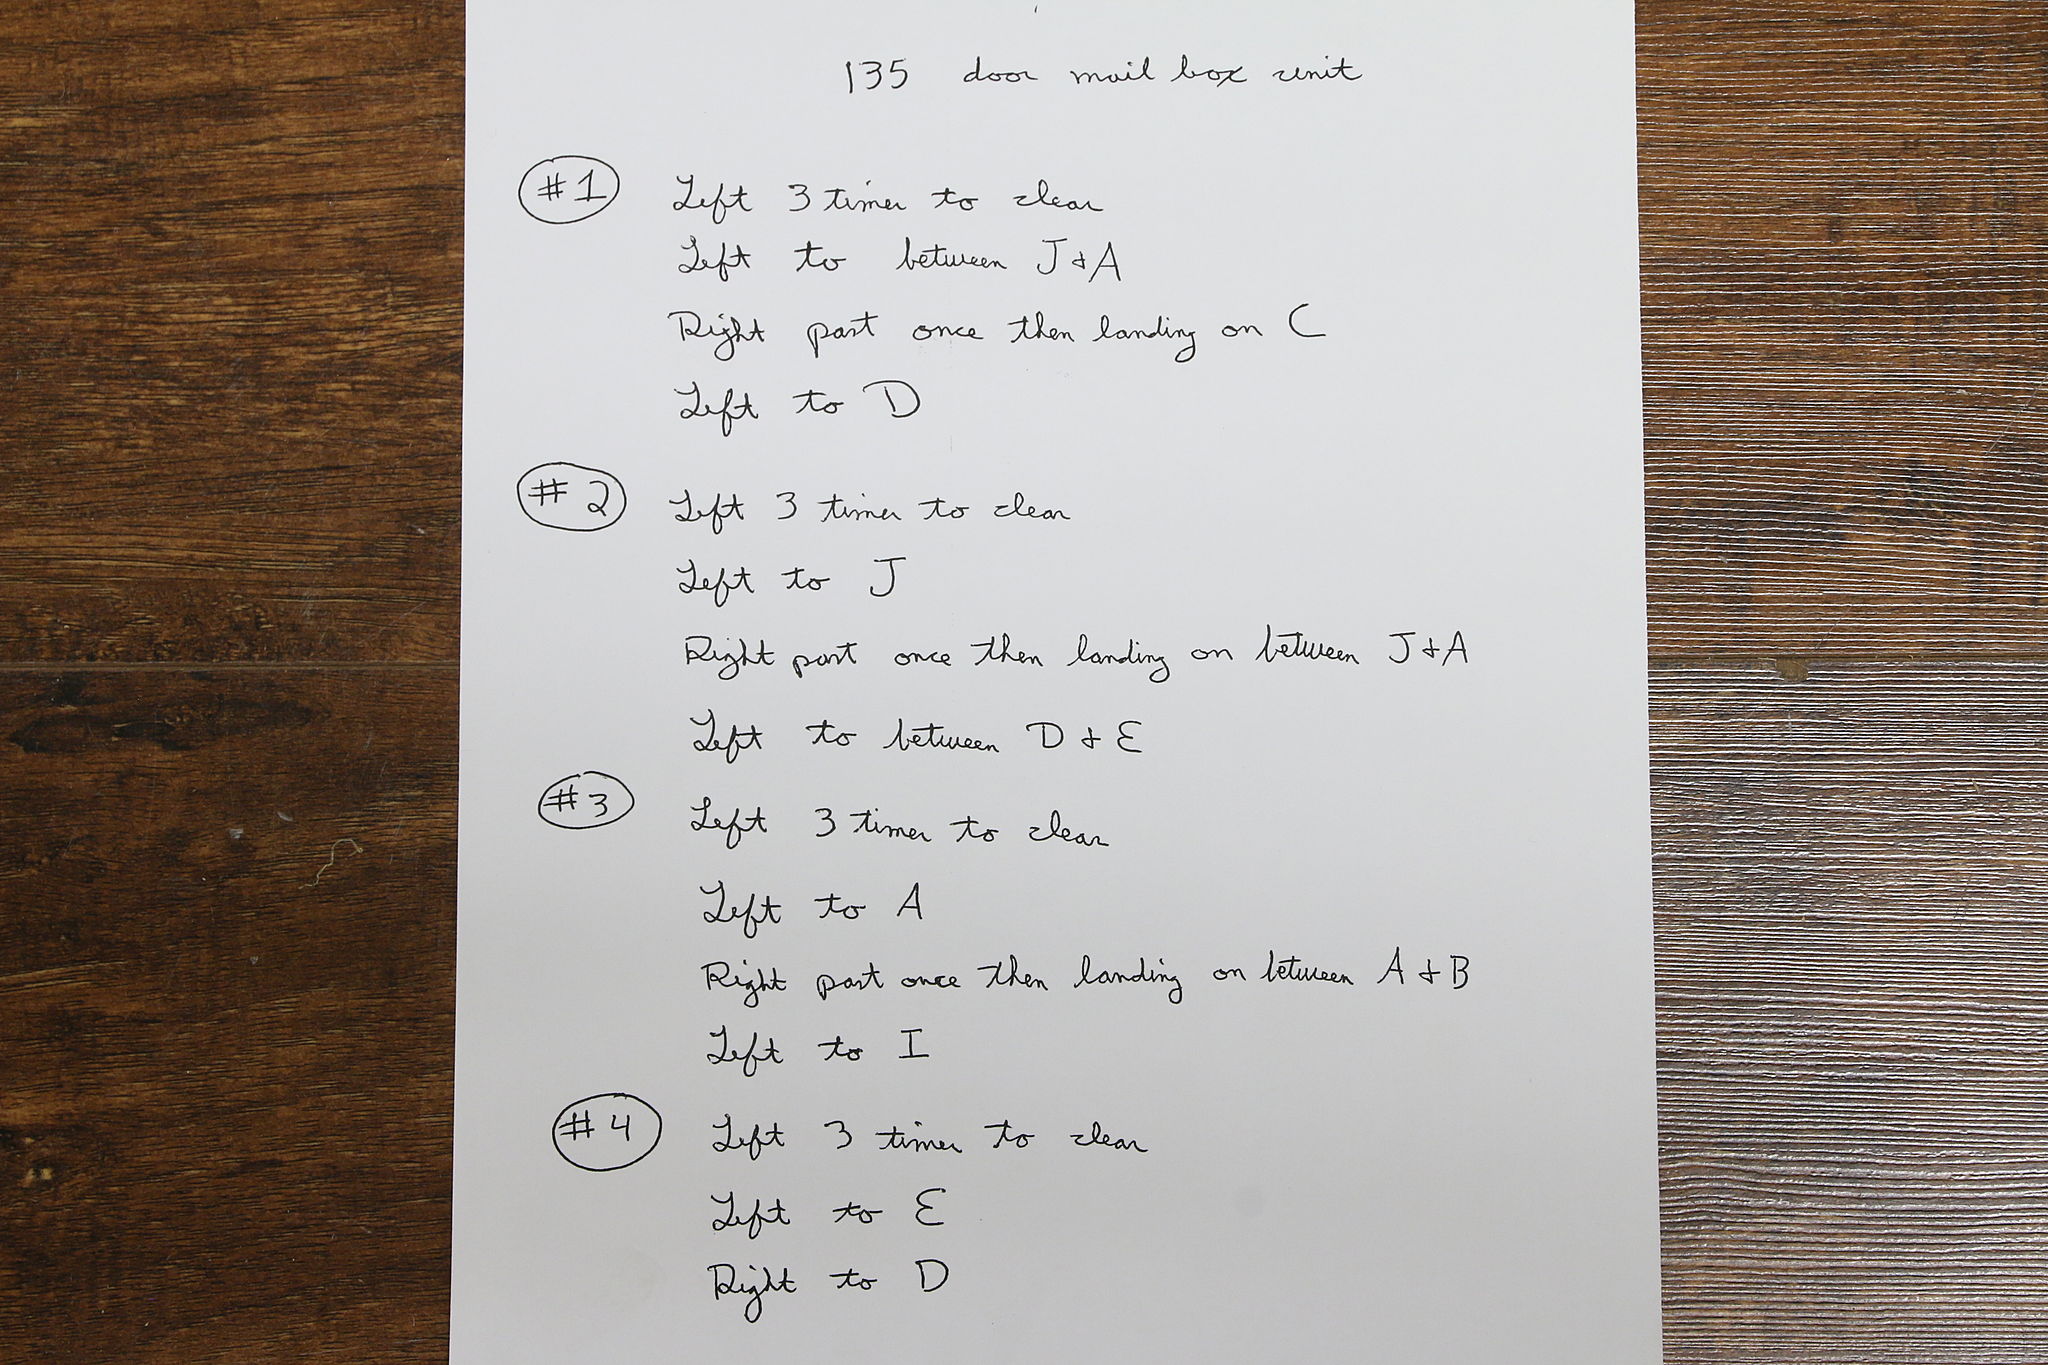 135 door mail box unit
#1 Left 3 times to clear
Left to between J & A
Right past once then landing on C
Left to D
#2 Left 3 times to clear
Left to J
Right past once then landing on between J & A
Left to between D & E
#3 Left 3 times to clear
Left to A
Right past once then landing on between A & B
Left to I
#4 Left 3 times to clear
Left to E
Right to D